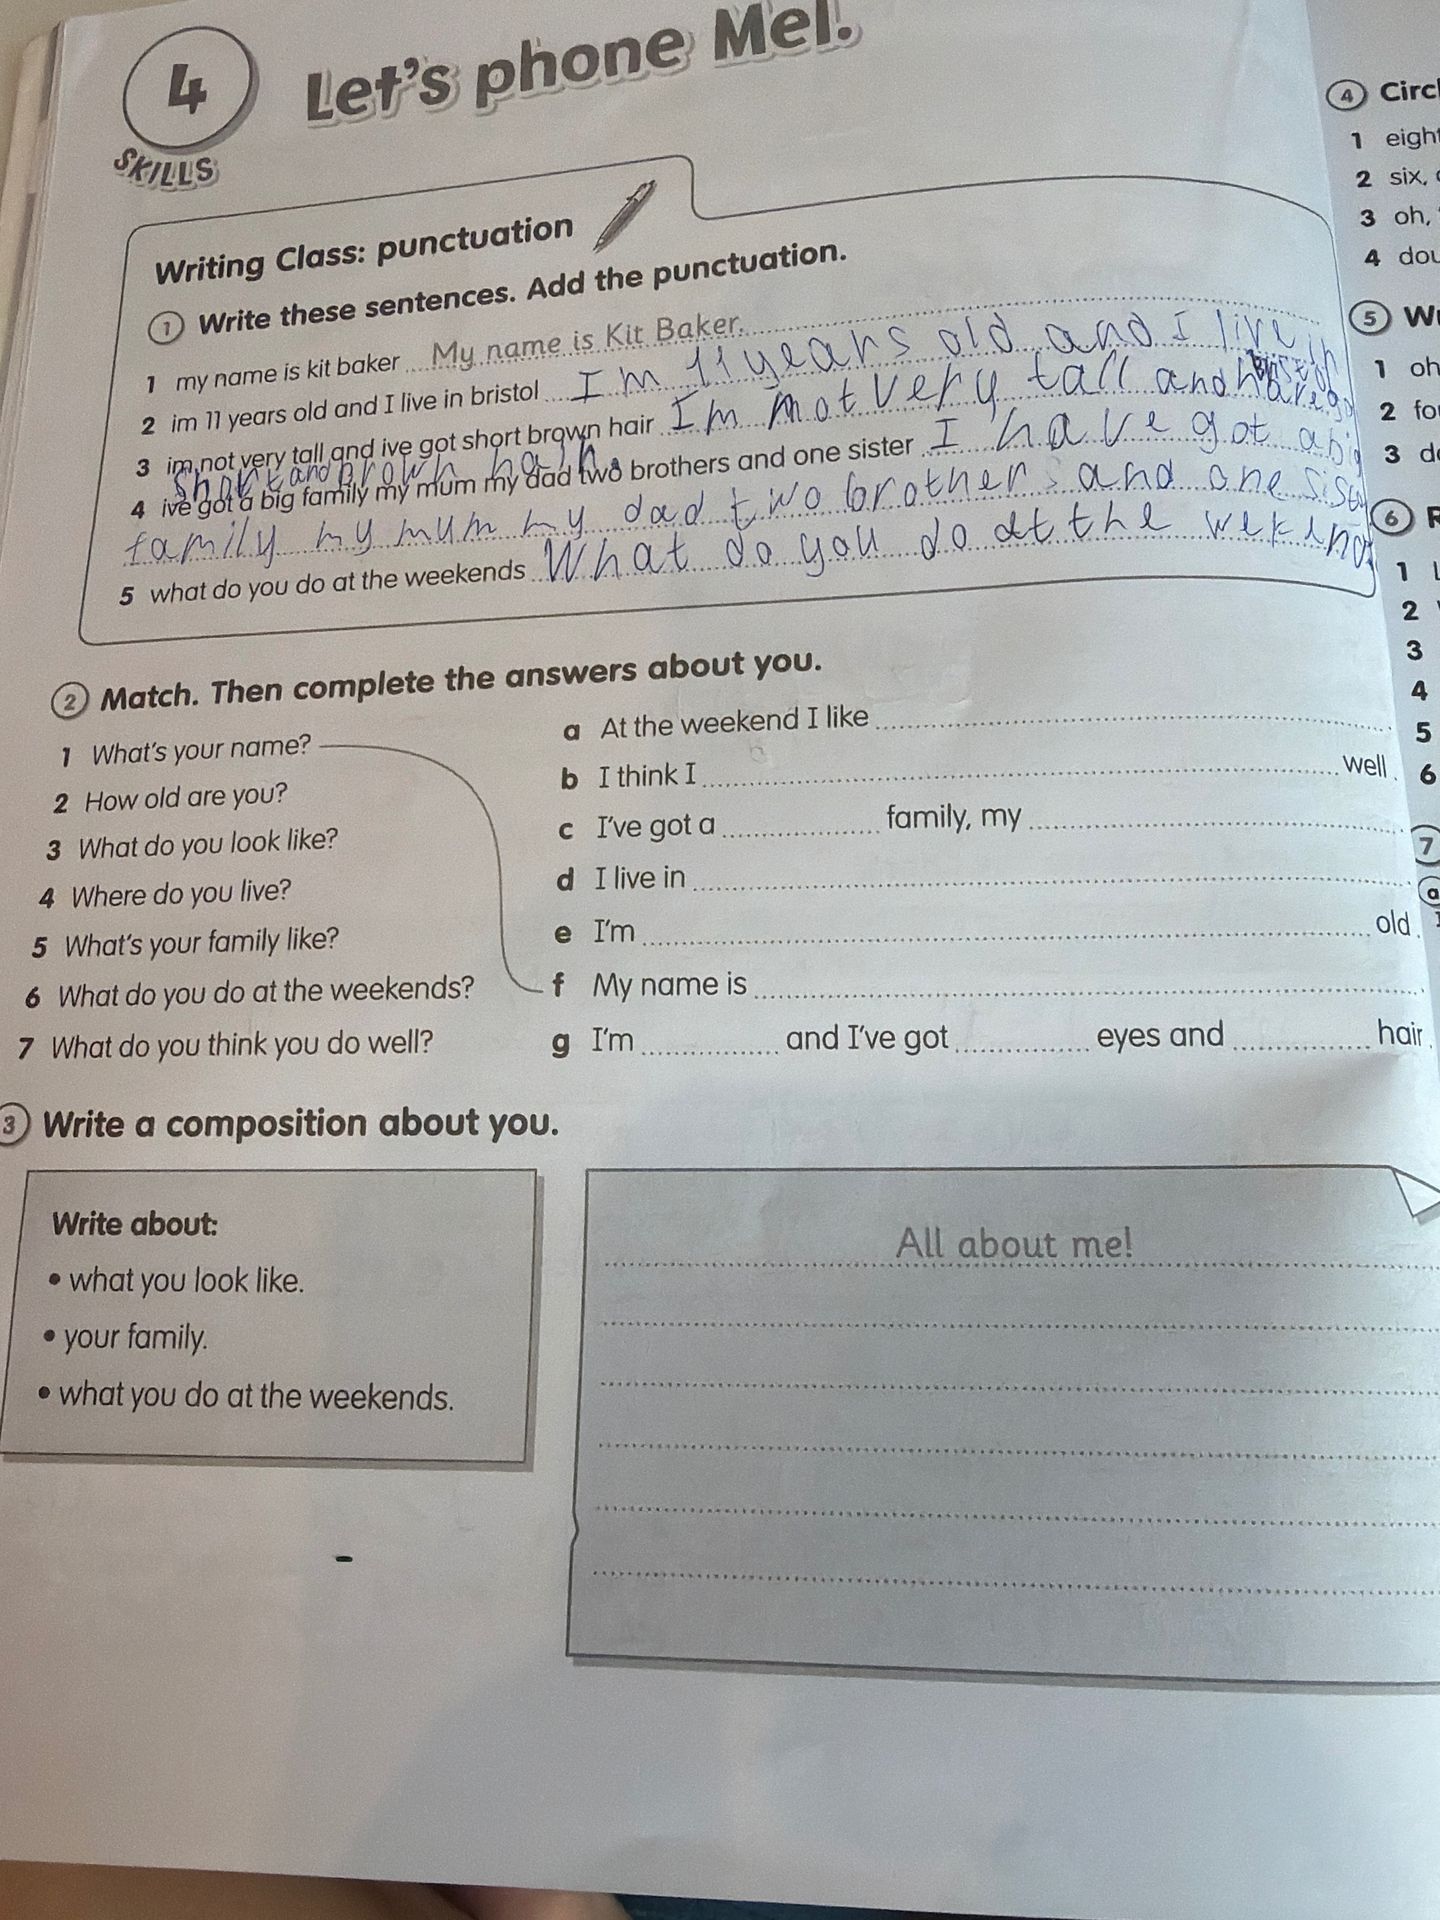 4
SKILLS
Let's phone Mel.
Writing Class: punctuation
1 Write these sentences. Add the punctuation.
1 my name is kit baker My name is Kit Baker.
2 im 11 years old and I live in bristol I m 11 years old and I live in
Bristol
3 im not very tall and ive got short brown hair Im not very tall and have go
short and brown hair.
4 ive got a big family my mum my dad two brothers and one sister I have got a big
family my mum my dad two brothers and one sist
5 what do you do at the weekends What do you do at the wekend
2 Match. Then complete the answers about you.
1 What's your name?
2 How old are you?
3 What do you look like?
4 Where do you live?
5 What's your family like?
6 What do you do at the weekends?
7 What do you think you do well?
a At the weekend I like
b I think I well.
c I've got a family, my
d I live in
e I'm old.
f My name is
g I'm and I've got eyes and hair.
3 Write a composition about you.
Write about:
• what you look like.
• your family.
• what you do at the weekends.
All about me!
4 Circ
1 eight
2 six,
3 oh,
4 dou
5 W
1 oh
2 fo
3 d
6 R
1
2
3
4
5
6
7
a